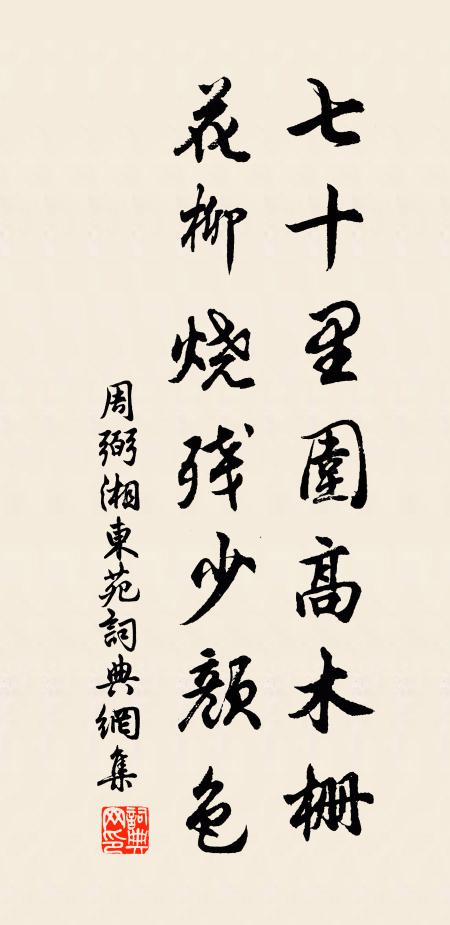 七十里圍高木柵
花柳燒残少顏色
周弼湘東苑詞典網集
詞典網印